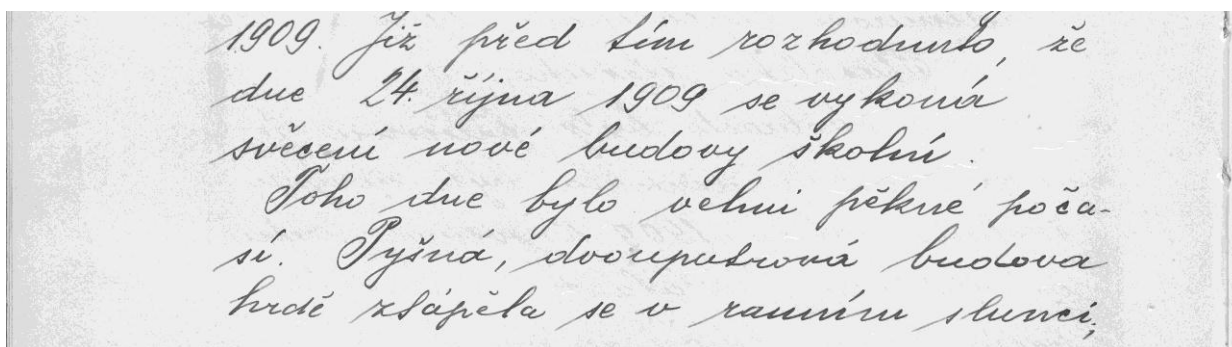 1909. Již před tím rozhodnuto, že
dne 24. října 1909 se vykoná
svěcení nové budovy školní.
Toho dne bylo velmi pěkné poča-
sí. Pyšná, dvouputrová budova
hrdě zřápěla se v ranním slunci,